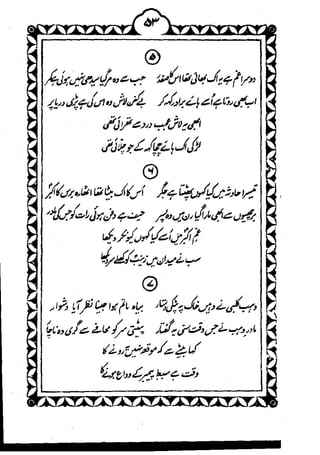 ۵۳
۵
دوسرا غم ہے یہ اک بھائی تھا اس کا صفدر جب سے وہ مر گیا سیدھی نہیں ہوئی ہے کمر
اب بھی روتا ہے اُسے ہائے برادر کہہ کر بے کفن لاش وہ اس کی ہے پڑی دریا پر
ابھی یہ لاش عجب درد سے تھرائی تھی
لڑکی اک ہائے چچا کہہ کے جو چلائی تھی
۶
تیسرا حادثہ میں کیا کہوں پھٹتا ہے جگر اُس کا اک بیٹا تھا اٹھارہ برس کا اکبر
برچھیوں سے ابھی مارا گیا رن میں وہ پسر حیف ہے دفن ہوئی رات کو جس کی مادر
غم اکبر میں اُسے کیا کہوں کیونکر دیکھا
سب نے میدان میں زینب کو کھلے سر دیکھا
۷
وہب کلبی نے وہیں خاک پہ پٹکی دستار بیاہ ماتم ہوا جینا نظر آیا دشوار
مادر وہب نے جس وقت سنی یہ گفتار پیٹتی سر کو محافے سے گری وہ ناچار
کہا بیٹے سے کہ موقعہ نہیں اب رونے کا
وقت ہے سبط پیمبر کے وداع ہونے کا